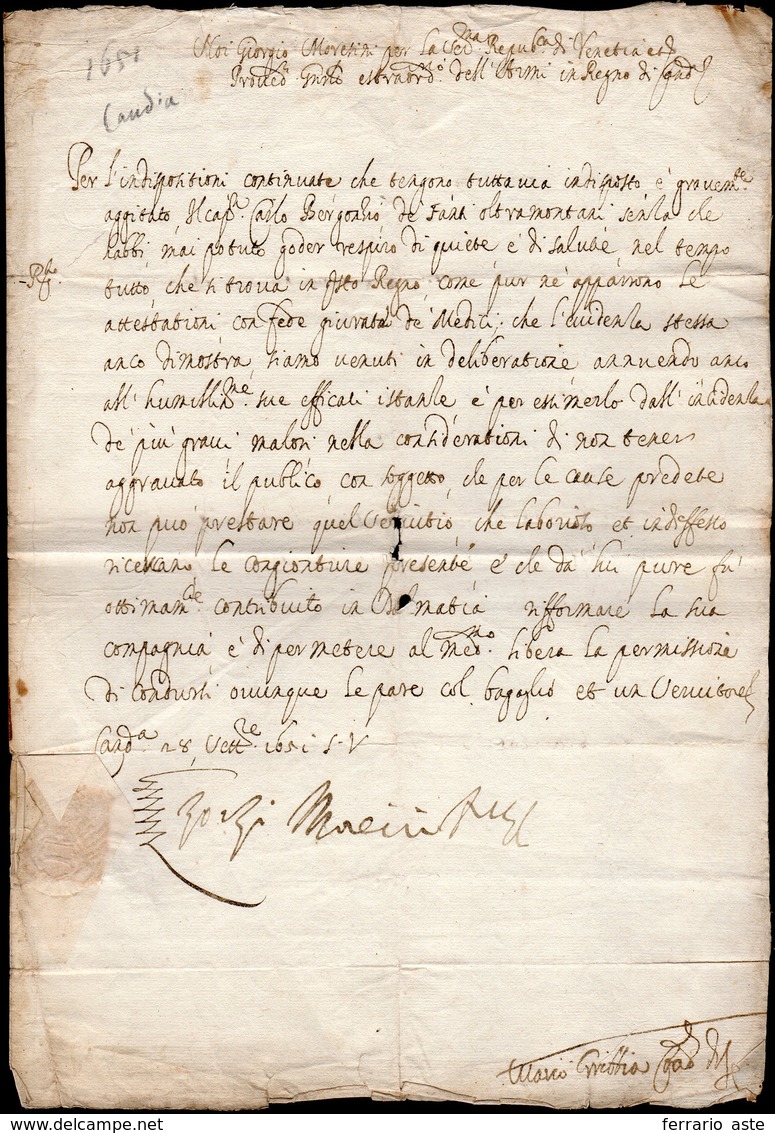 1651
Candia
Noi Giorgio Moresini per la Ser.ma Republ.ca di Venetia etc.
Proved.r Gn'le estraord.o dell'Armi in Regno di Cand.
Per l'indispositioni continuate che tengono tuttavia indisposto e gravem.te
aggitato, Il cap.o Carlo Bergonhio de Fanti oltramontani senza che
habbi, mai potuto goder respiro di quiete e di salute nel tempo
tutto che si trova in q'sto Regno, come pur ne apparrono le
attestationi con fede giurata de Medici, che l'evidenza stessa
anco dimostra, siamo venuti in deliberatione annuendo anco
all' humiliss.me sue efficaci istanze e per esimerlo dall' incidenza
de più gravi malori nella considerationi di non tener
aggravato il publico con soggetto, che per le cause predete
non può prestare quel servitio, che laborioso et indeffesso
ricercano le congionture presente e che da lui pure fù
ottimam.te contribuito in Dalmatia rifformare la sua
compagnia e di permetere al med.mo libera la permissione
di condursi ovunque le pare col bagaglio et un servitore
Cand.a 28 Sett.re 1651 S.V
Zorzi Moresini
Mario
ferrario aste